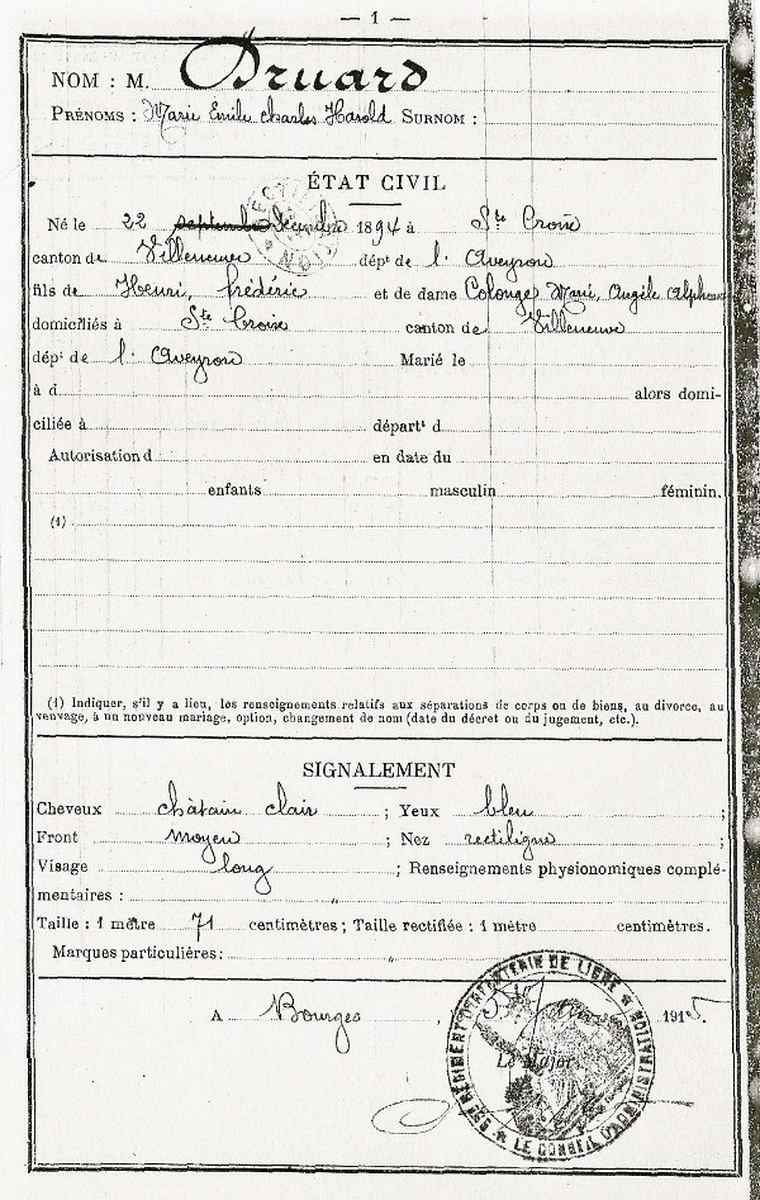 — 1 —
NOM : M. Druard
PRÉNOMS : Marie Emile Charles Harold SURNOM :
ÉTAT CIVIL
Né le 22 septembre décembre 1894 à Ste Croix
canton de Villeneuve dépt de l'Aveyron
fils de Henri, frédéric et de dame Colonges Marie, Angèle Alphons
domiciliés à Ste Croix canton de Villeneuve
dépt de l'Aveyron Marié le
à d alors domi-
ciliée à départt d
Autorisation d en date du
enfants masculin féminin.
(1)
(1) Indiquer, s'il y a lieu, les renseignements relatifs aux séparations de corps ou de biens, au divorce, au
veuvage, à un nouveau mariage, option, changement de nom (date du décret ou du jugement, etc.).
SIGNALEMENT
Cheveux châtain clair ; Yeux bleu ;
Front moyen ; Nez rectiligne ;
Visage long ; Renseignements physionomiques complé-
mentaires : "
Taille : 1 mètre 71 centimètres ; Taille rectifiée : 1 mètre centimètres.
Marques particulières : "
A Bourges, 1915.
Le Major
RÉGIMENT D'INFANTERIE DE LIGNE
LE CONSEIL D'ADMINISTRATION